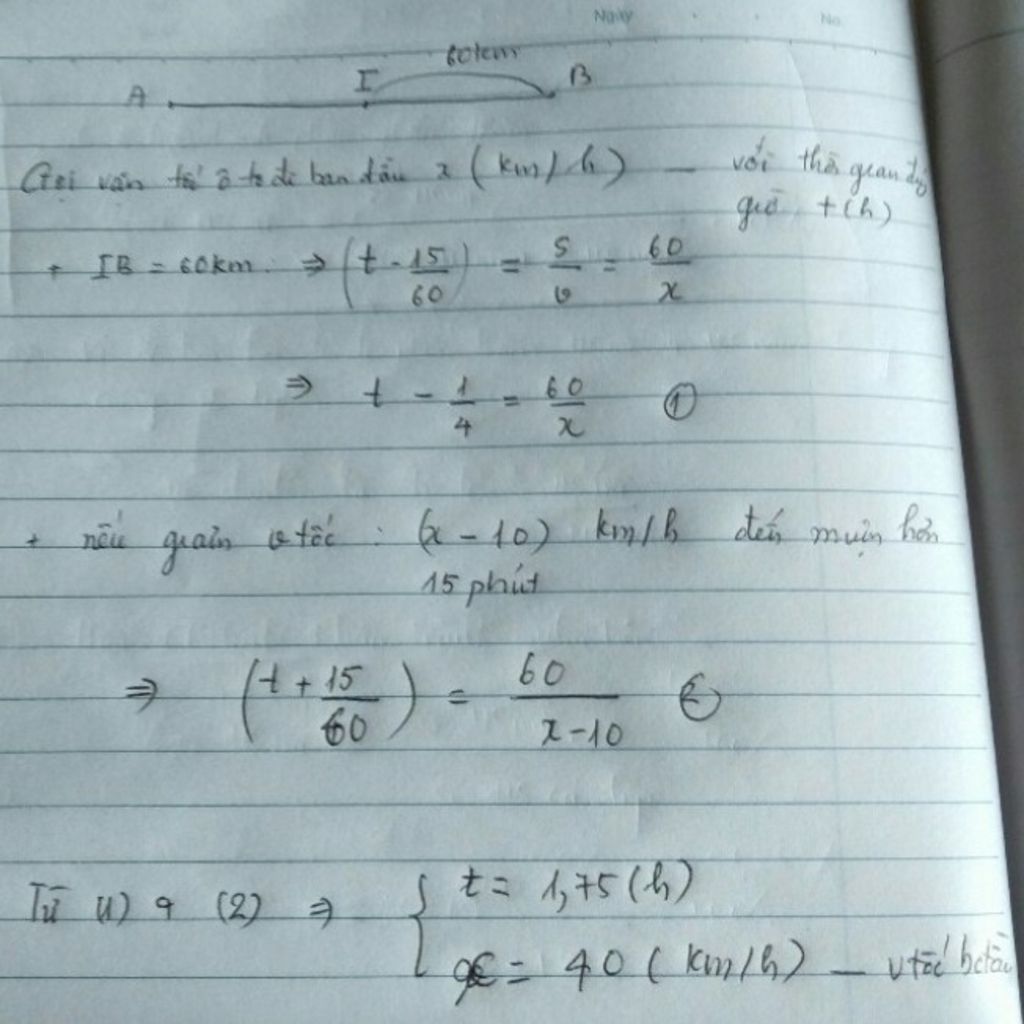 No.
60km
A I B
Gọi vận tốc ô tô đi ban đầu x (km/h) — với thời gian đúng
giờ t (h)
+ IB = 60km. ⇒ (t - 15/60) = S/v = 60/x
⇒ t - 1/4 = 60/x ①
+ nếu giảm v tốc : (x - 10) km/h đến muộn hơn
15 phút
⇒ (t + 15/60) = 60/(x-10) ②
Từ (1) & (2) ⇒ { t = 1,75 (h)
x = 40 (km/h) — v tốc